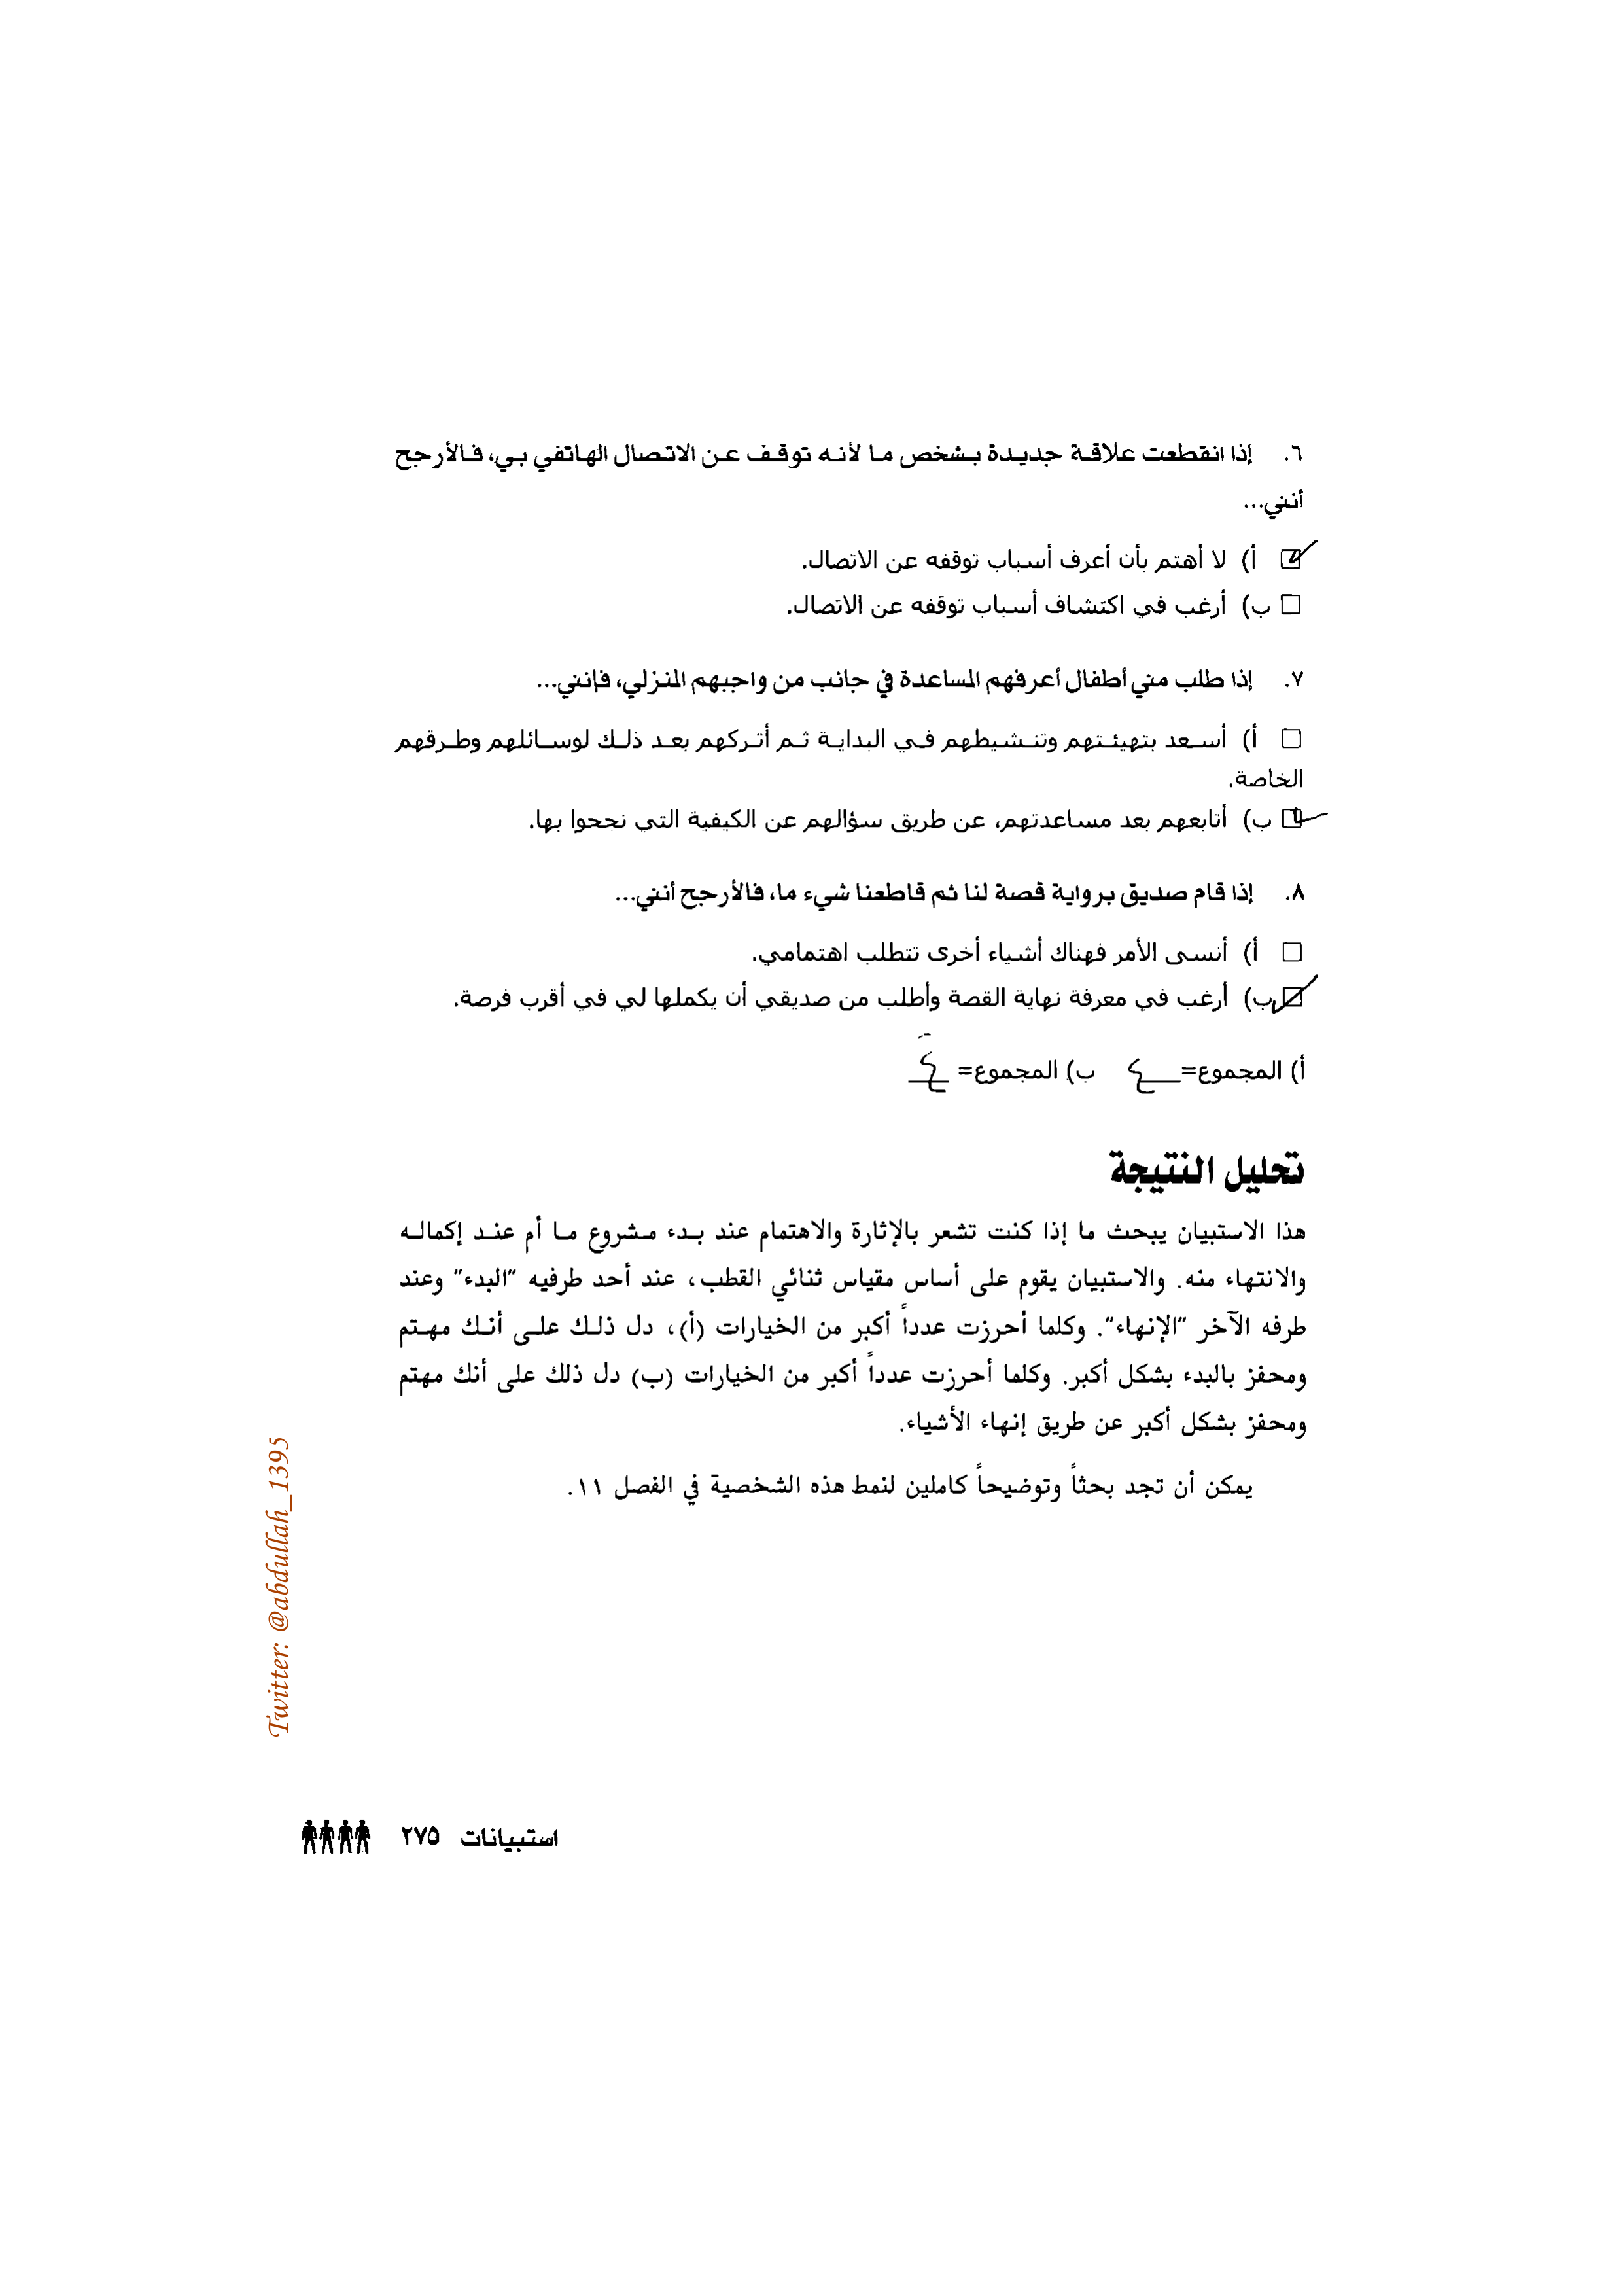 ٦. إذا انقطعت علاقة جديدة بشخص ما لأنه توقف عن الاتصال الهاتفي بي، فالأرجح
أنني...
أ) لا أهتم بأن أعرف أسباب توقفه عن الاتصال.
ب) أرغب في اكتشاف أسباب توقفه عن الاتصال.
٧. إذا طلب مني أطفال أعرفهم المساعدة في جانب من واجبهم المنزلي، فإنني...
أ) أسعد بتهيئتهم وتنشيطهم في البداية ثم أتركهم بعد ذلك لوسائلهم وطرقهم
الخاصة.
ب) أتابعهم بعد مساعدتهم، عن طريق سؤالهم عن الكيفية التي نجحوا بها.
٨. إذا قام صديق برواية قصة لنا ثم قاطعنا شيء ما، فالأرجح أنني...
أ) أنسى الأمر فهناك أشياء أخرى تتطلب اهتمامي.
ب) أرغب في معرفة نهاية القصة وأطلب من صديقي أن يكملها لي في أقرب فرصة.
أ) المجموع= ٤ ب) المجموع= ٤
تحليل النتيجة
هذا الاستبيان يبحث ما إذا كنت تشعر بالإثارة والاهتمام عند بدء مشروع ما أم عند إكماله
والانتهاء منه. والاستبيان يقوم على أساس مقياس ثنائي القطب، عند أحد طرفيه "البدء" وعند
طرفه الآخر "الإنهاء". وكلما أحرزت عدداً أكبر من الخيارات (أ)، دل ذلك على أنك مهتم
ومحفز بالبدء بشكل أكبر. وكلما أحرزت عدداً أكبر من الخيارات (ب) دل ذلك على أنك مهتم
ومحفز بشكل أكبر عن طريق إنهاء الأشياء.
يمكن أن تجد بحثاً وتوضيحاً كاملين لنمط هذه الشخصية في الفصل ١١.
Twitter: @abdullah_1395
استبيانات ٢٧٥